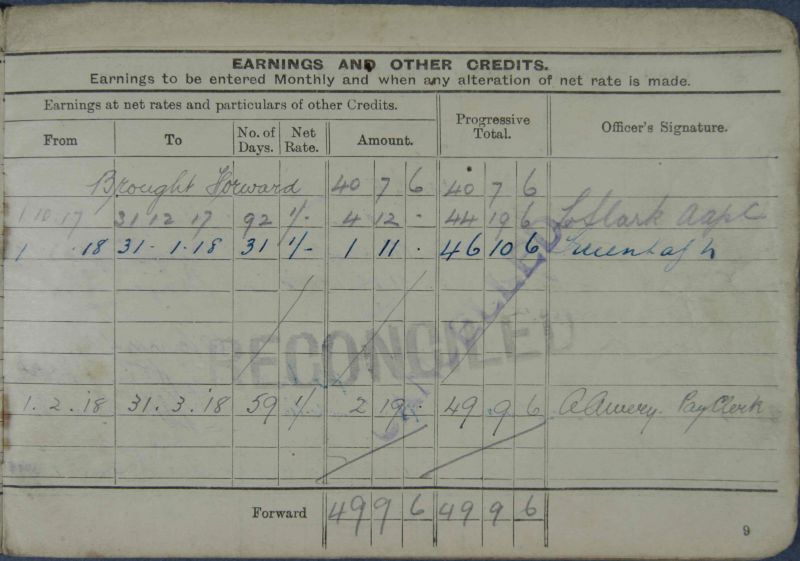 EARNINGS AND OTHER CREDITS.
Earnings to be entered Monthly and when any alteration of net rate is made.
Earnings at net rates and particulars of other Credits.
Progressive Total.
Officer's Signature.
From To No. of Days. Net Rate. Amount.
Brought Forward 40 7 6 40 7 6
1 10 17 31 12 17 92 1/- 4 12 - 44 19 6
1 18 31 . 1 . 18 31 1/- 1 11 . 46 10 6
CANCELLED
RECONCILED
1 . 2 . 18 31 . 3 . 18 59 1/- 2 19 - 49 9 6 Pay Clerk
Forward 49 9 6 49 9 6
9